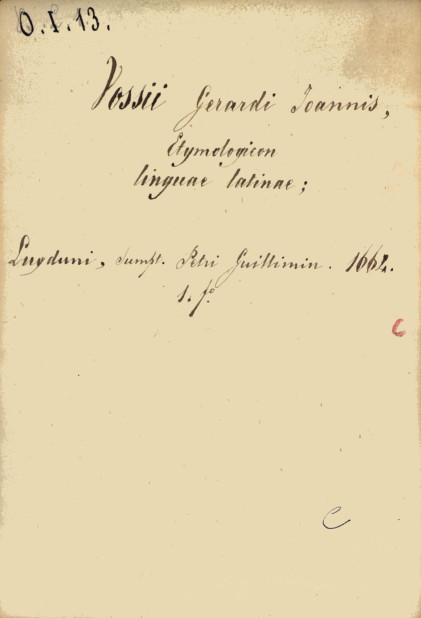 O.I.13.
Vossii Gerardi Joannis,
Etymologicon
linguae latinae;
Lugduni, Sumpt. Petri Guillimin. 1664.
1. fo.
C
C